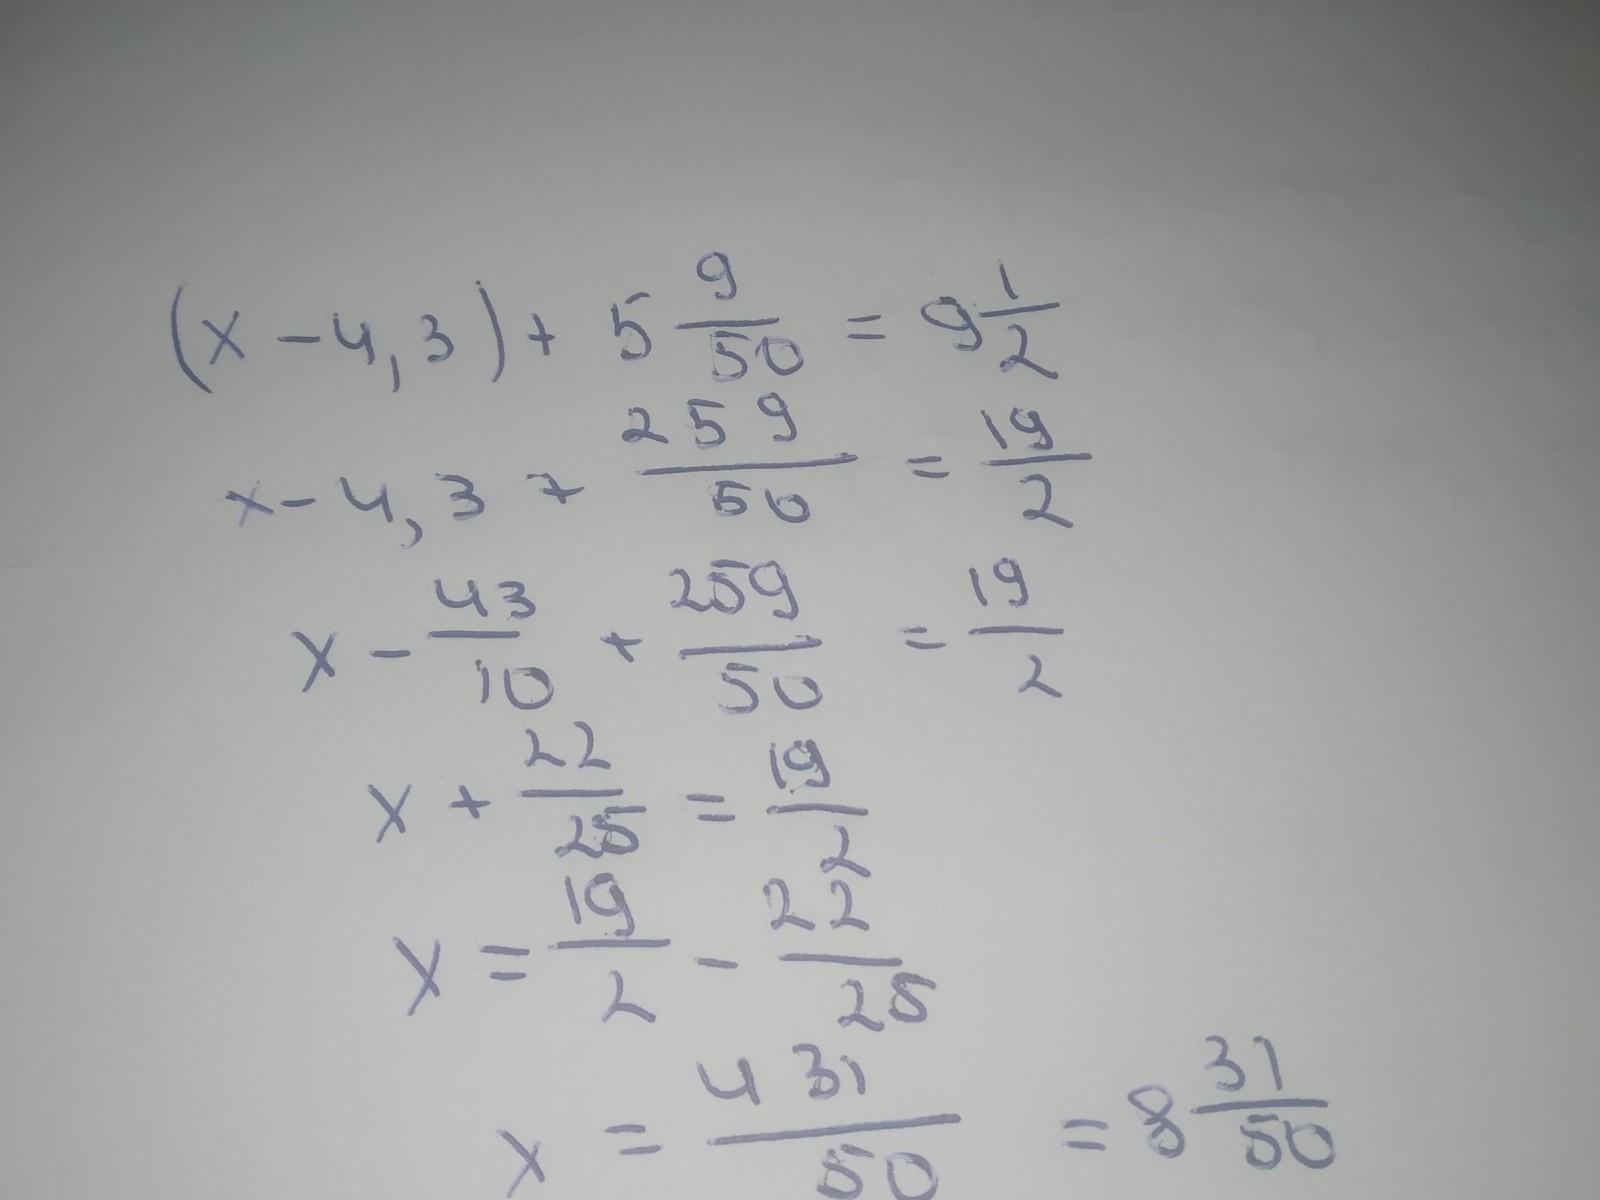 (x - 4,3) + 5 9/50 = 9 1/2
x - 4,3 + 259/50 = 19/2
x - 43/10 + 259/50 = 19/2
x + 22/25 = 19/2
x = 19/2 - 22/25
x = 431/50 = 8 31/50